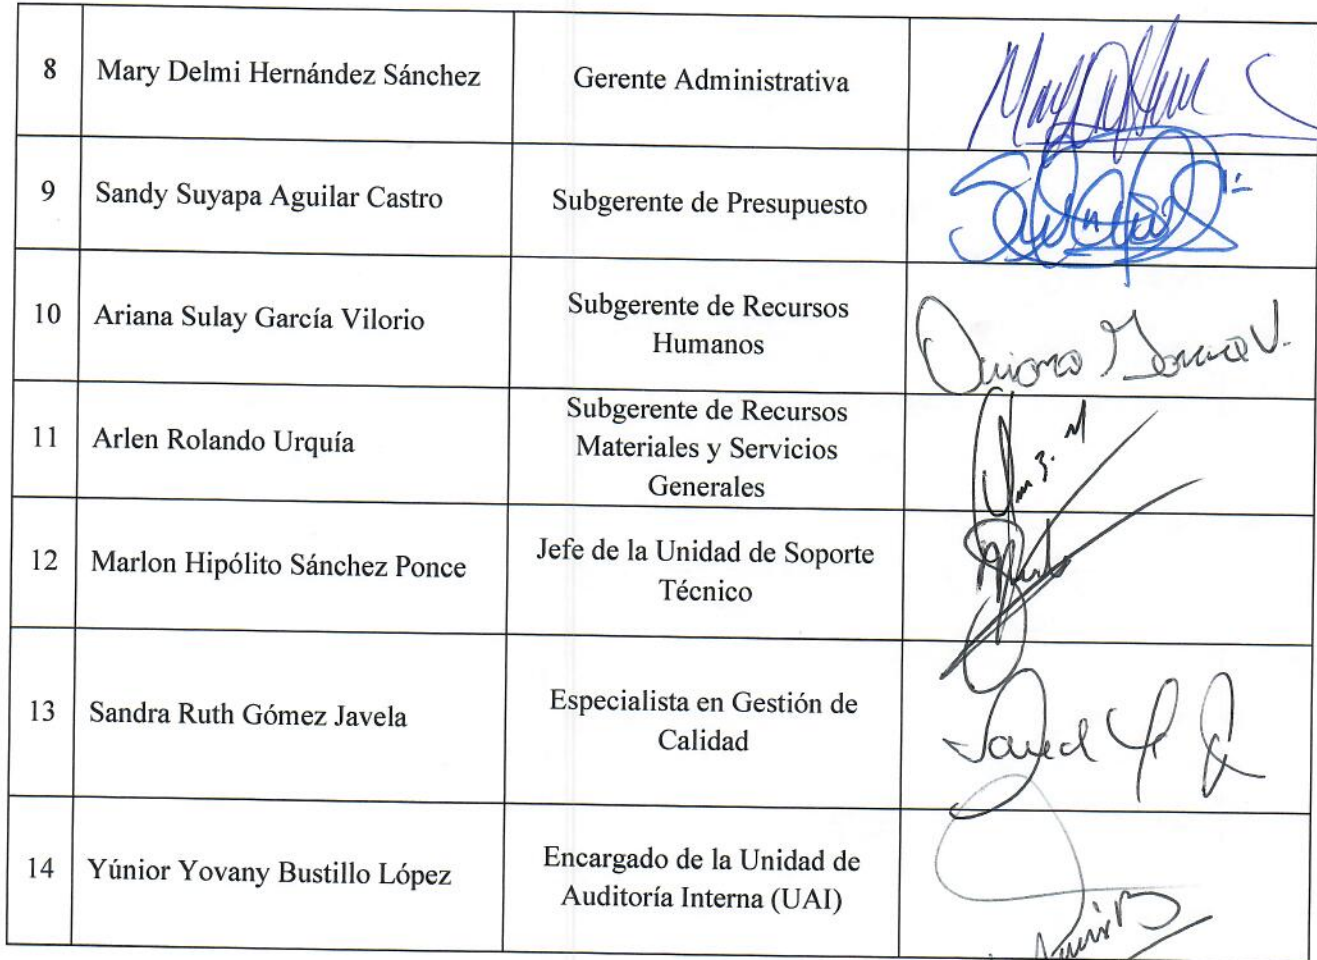 8 Mary Delmi Hernández Sánchez Gerente Administrativa
9 Sandy Suyapa Aguilar Castro Subgerente de Presupuesto
10 Ariana Sulay García Vilorio Subgerente de Recursos
Humanos
11 Arlen Rolando Urquía Subgerente de Recursos
Materiales y Servicios
Generales
12 Marlon Hipólito Sánchez Ponce Jefe de la Unidad de Soporte
Técnico
13 Sandra Ruth Gómez Javela Especialista en Gestión de
Calidad
14 Yúnior Yovany Bustillo López Encargado de la Unidad de
Auditoría Interna (UAI)